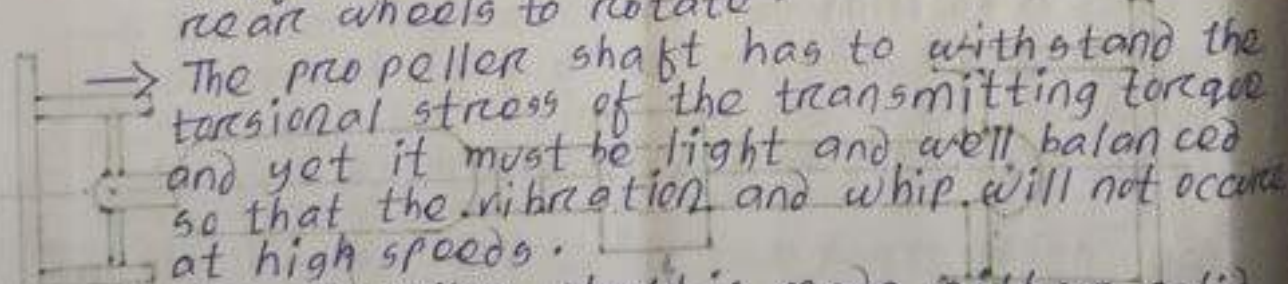 rear wheels to rotate
→ The propeller shaft has to withstand the
torsional stress of the transmitting torque
and yet it must be light and well balanced
so that the vibration and whip will not occur
at high speeds.